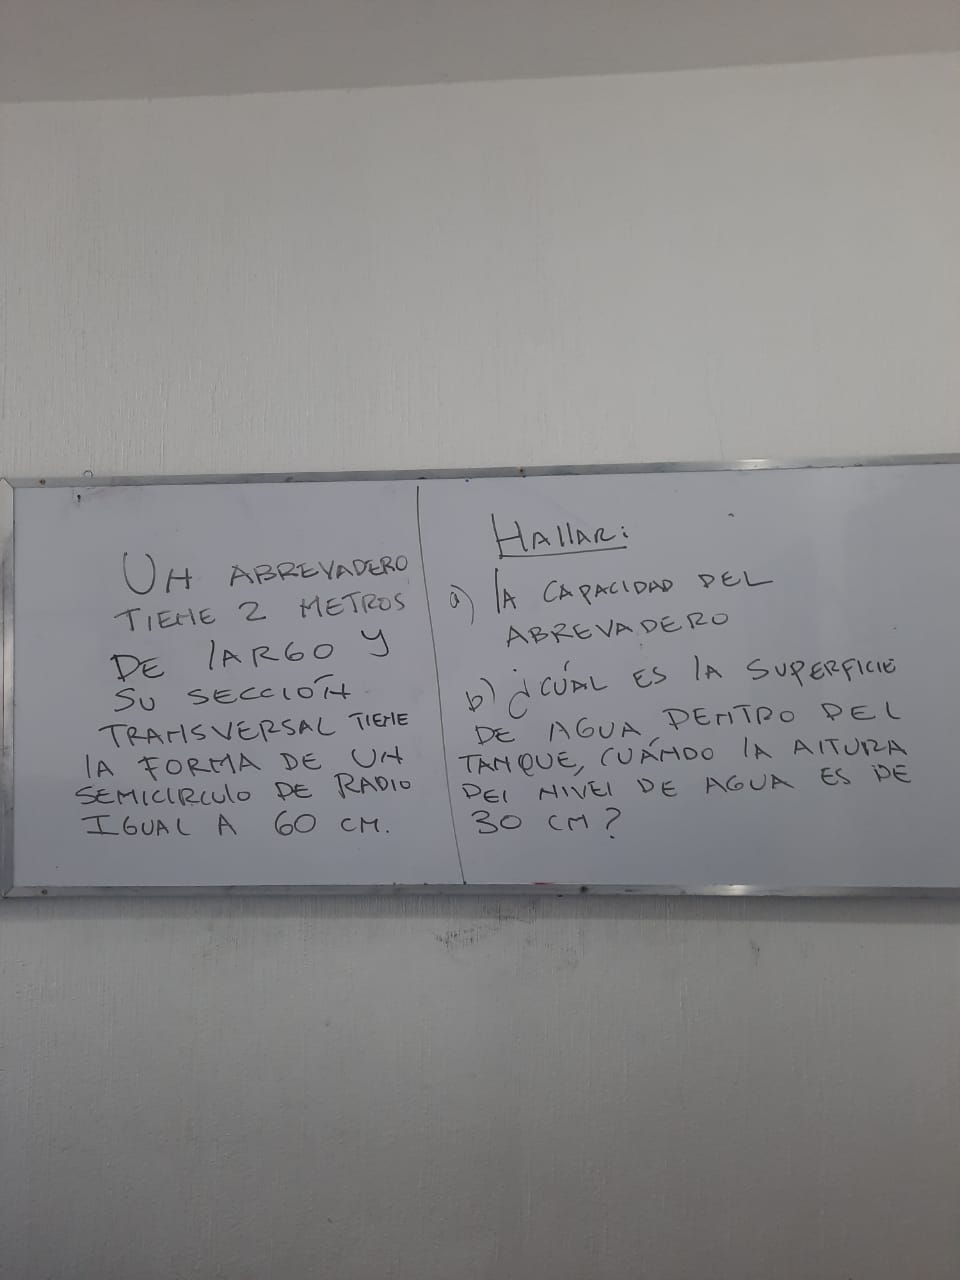 UN ABREVADERO
TIENE 2 METROS
DE LARGO Y
SU SECCIÓN
TRANSVERSAL TIENE
LA FORMA DE UN
SEMICIRCULO DE RADIO
IGUAL A 60 CM.
HALLAR:
a) LA CAPACIDAD DEL
ABREVADERO
b) ¿CÚAL ES LA SUPERFICIE
DE AGUA, DENTRO DEL
TANQUE, CUÁNDO LA ALTURA
DEL NIVEL DE AGUA ES DE
30 CM?